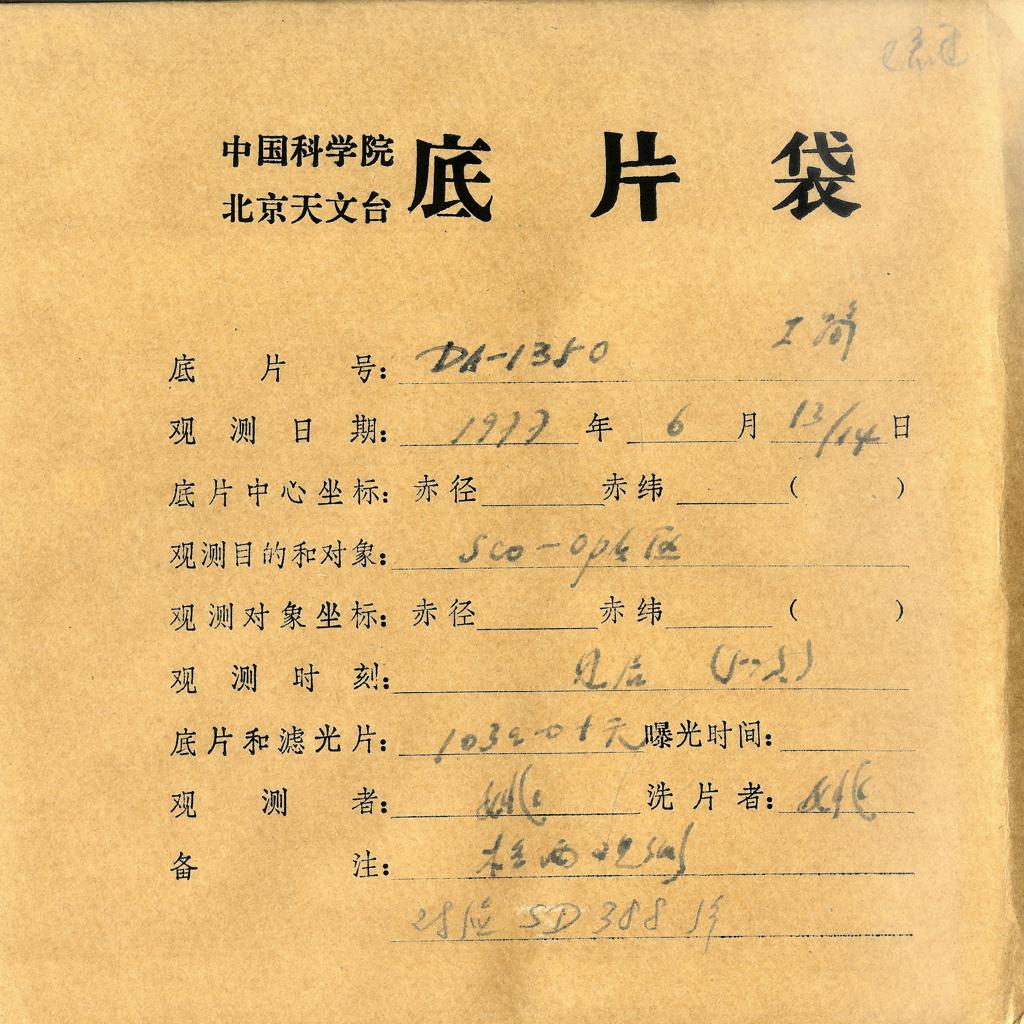 中国科学院
北京天文台
底片袋
底片号：DA-1380
观测日期：1977年6月13/14日
底片中心坐标：赤径 赤纬 ( )
观测目的和对象：Sco-Oph区
观测对象坐标：赤径 赤纬 ( )
观测时刻：见后
底片和滤光片：103a-O+无 曝光时间：
观测者： 洗片者：
备注：
对应 SD388